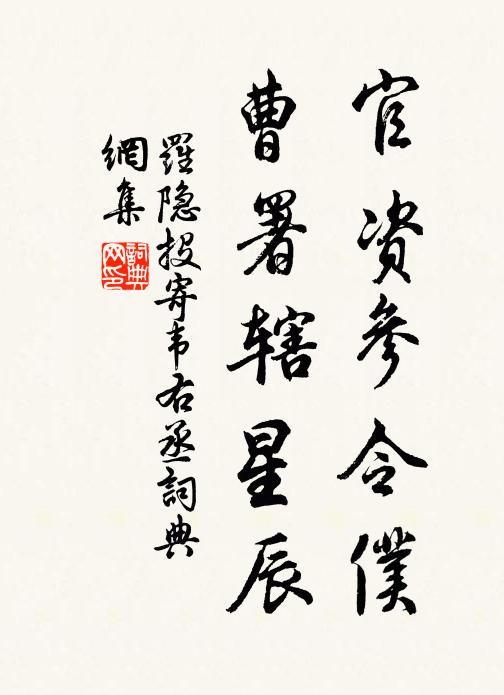 官资參令僕
曹署辖星辰
羅隐投寄韦右丞詞典
網集
詞典
网印